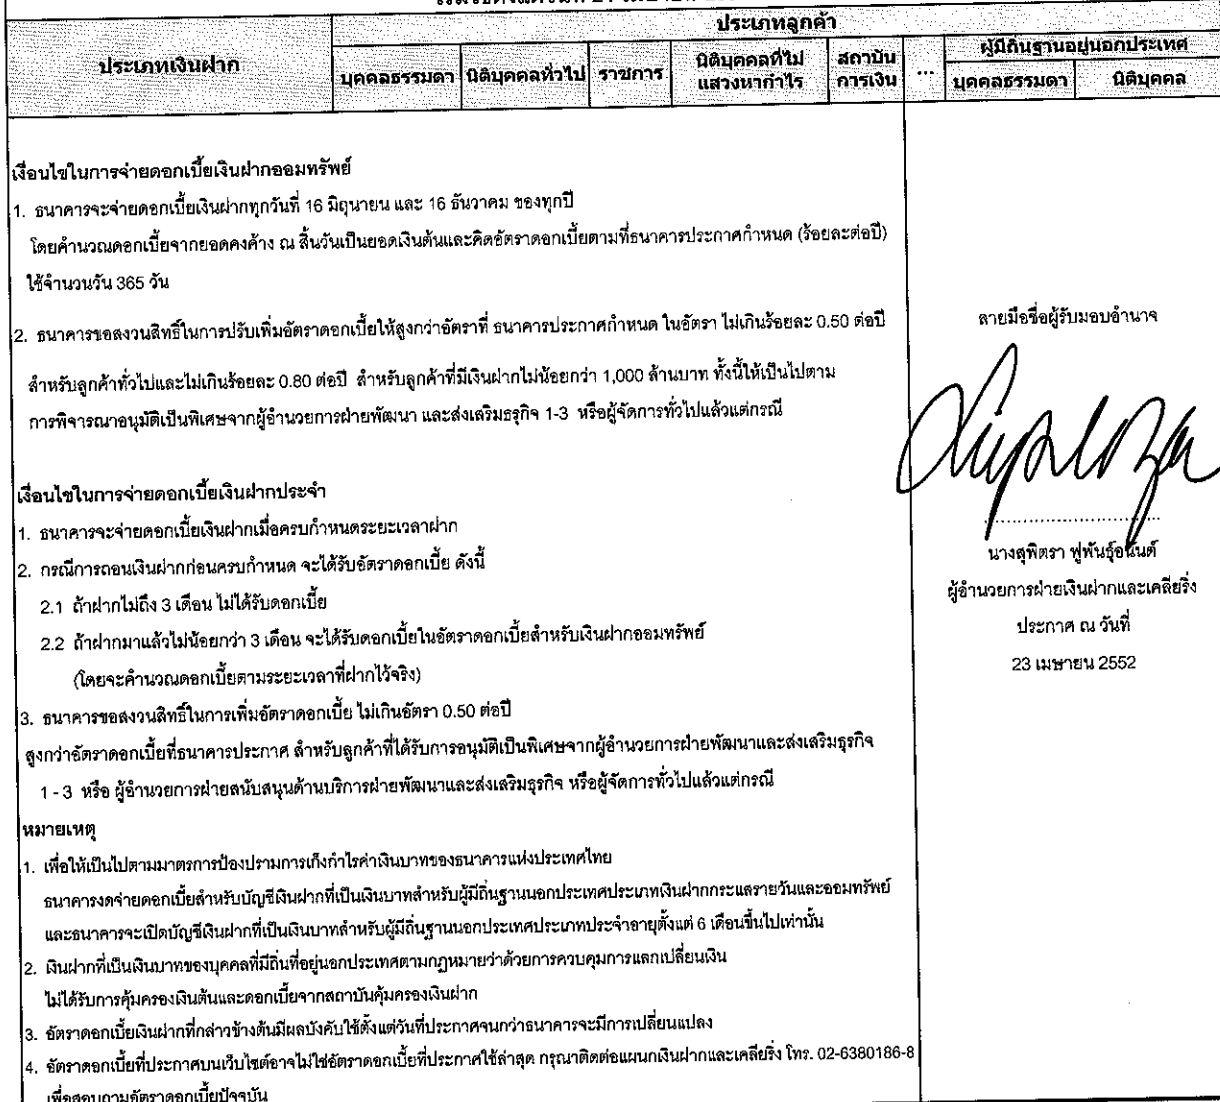 ประเภทลูกค้า
ประเภทเงินฝาก
บุคคลธรรมดา
นิติบุคคลทั่วไป
ราชการ
นิติบุคคลที่ไม่
แสวงหากำไร
สถาบัน
การเงิน
...
ผู้มีถิ่นฐานอยู่นอกประเทศ
บุคคลธรรมดา
นิติบุคคล
เงื่อนไขในการจ่ายดอกเบี้ยเงินฝากออมทรัพย์
1. ธนาคารจะจ่ายดอกเบี้ยเงินฝากทุกวันที่ 16 มิถุนายน และ 16 ธันวาคม ของทุกปี
โดยคำนวณดอกเบี้ยจากยอดคงค้าง ณ สิ้นวันเป็นยอดเงินต้นและคิดอัตราดอกเบี้ยตามที่ธนาคารประกาศกำหนด (ร้อยละต่อปี)
ใช้จำนวนวัน 365 วัน
2. ธนาคารขอสงวนสิทธิ์ในการปรับเพิ่มอัตราดอกเบี้ยให้สูงกว่าอัตราที่ ธนาคารประกาศกำหนด ในอัตรา ไม่เกินร้อยละ 0.50 ต่อปี
สำหรับลูกค้าทั่วไปและไม่เกินร้อยละ 0.80 ต่อปี สำหรับลูกค้าที่มีเงินฝากไม่น้อยกว่า 1,000 ล้านบาท ทั้งนี้ให้เป็นไปตาม
การพิจารณาอนุมัติเป็นพิเศษจากผู้อำนวยการฝ่ายพัฒนา และส่งเสริมธุรกิจ 1-3 หรือผู้จัดการทั่วไปแล้วแต่กรณี
เงื่อนไขในการจ่ายดอกเบี้ยเงินฝากประจำ
1. ธนาคารจะจ่ายดอกเบี้ยเงินฝากเมื่อครบกำหนดระยะเวลาฝาก
2. กรณีการถอนเงินฝากก่อนครบกำหนด จะได้รับอัตราดอกเบี้ย ดังนี้
2.1 ถ้าฝากไม่ถึง 3 เดือน ไม่ได้รับดอกเบี้ย
2.2 ถ้าฝากมาแล้วไม่น้อยกว่า 3 เดือน จะได้รับดอกเบี้ยในอัตราดอกเบี้ยสำหรับเงินฝากออมทรัพย์
(โดยจะคำนวณดอกเบี้ยตามระยะเวลาที่ฝากไว้จริง)
3. ธนาคารขอสงวนสิทธิ์ในการเพิ่มอัตราดอกเบี้ย ไม่เกินอัตรา 0.50 ต่อปี
สูงกว่าอัตราดอกเบี้ยที่ธนาคารประกาศ สำหรับลูกค้าที่ได้รับการอนุมัติเป็นพิเศษจากผู้อำนวยการฝ่ายพัฒนาและส่งเสริมธุรกิจ
1 - 3 หรือ ผู้อำนวยการฝ่ายสนับสนุนด้านบริการฝ่ายพัฒนาและส่งเสริมธุรกิจ หรือผู้จัดการทั่วไปแล้วแต่กรณี
หมายเหตุ
1. เพื่อให้เป็นไปตามมาตรการป้องปรามการเก็งกำไรค่าเงินบาทของธนาคารแห่งประเทศไทย
ธนาคารงดจ่ายดอกเบี้ยสำหรับบัญชีเงินฝากที่เป็นเงินบาทสำหรับผู้มีถิ่นฐานนอกประเทศประเภทเงินฝากกระแสรายวันและออมทรัพย์
และธนาคารจะเปิดบัญชีเงินฝากที่เป็นเงินบาทสำหรับผู้มีถิ่นฐานนอกประเทศประเภทประจำอายุตั้งแต่ 6 เดือนขึ้นไปเท่านั้น
2. เงินฝากที่เป็นเงินบาทของบุคคลที่มีถิ่นที่อยู่นอกประเทศตามกฎหมายว่าด้วยการควบคุมการแลกเปลี่ยนเงิน
ไม่ได้รับการคุ้มครองเงินต้นและดอกเบี้ยจากสถาบันคุ้มครองเงินฝาก
3. อัตราดอกเบี้ยเงินฝากที่กล่าวข้างต้นมีผลบังคับใช้ตั้งแต่วันที่ประกาศจนกว่าธนาคารจะมีการเปลี่ยนแปลง
4. อัตราดอกเบี้ยที่ประกาศบนเว็บไซต์อาจไม่ใช่อัตราดอกเบี้ยที่ประกาศใช้ล่าสุด กรุณาติดต่อแผนกเงินฝากและเคลียริ่ง โทร. 02-6380186-8
เพื่อสอบถามอัตราดอกเบี้ยปัจจุบัน
ลายมือชื่อผู้รับมอบอำนาจ
นางสุพิตรา ฟูพันธุ์อนันต์
ผู้อำนวยการฝ่ายเงินฝากและเคลียริ่ง
ประกาศ ณ วันที่
23 เมษายน 2552